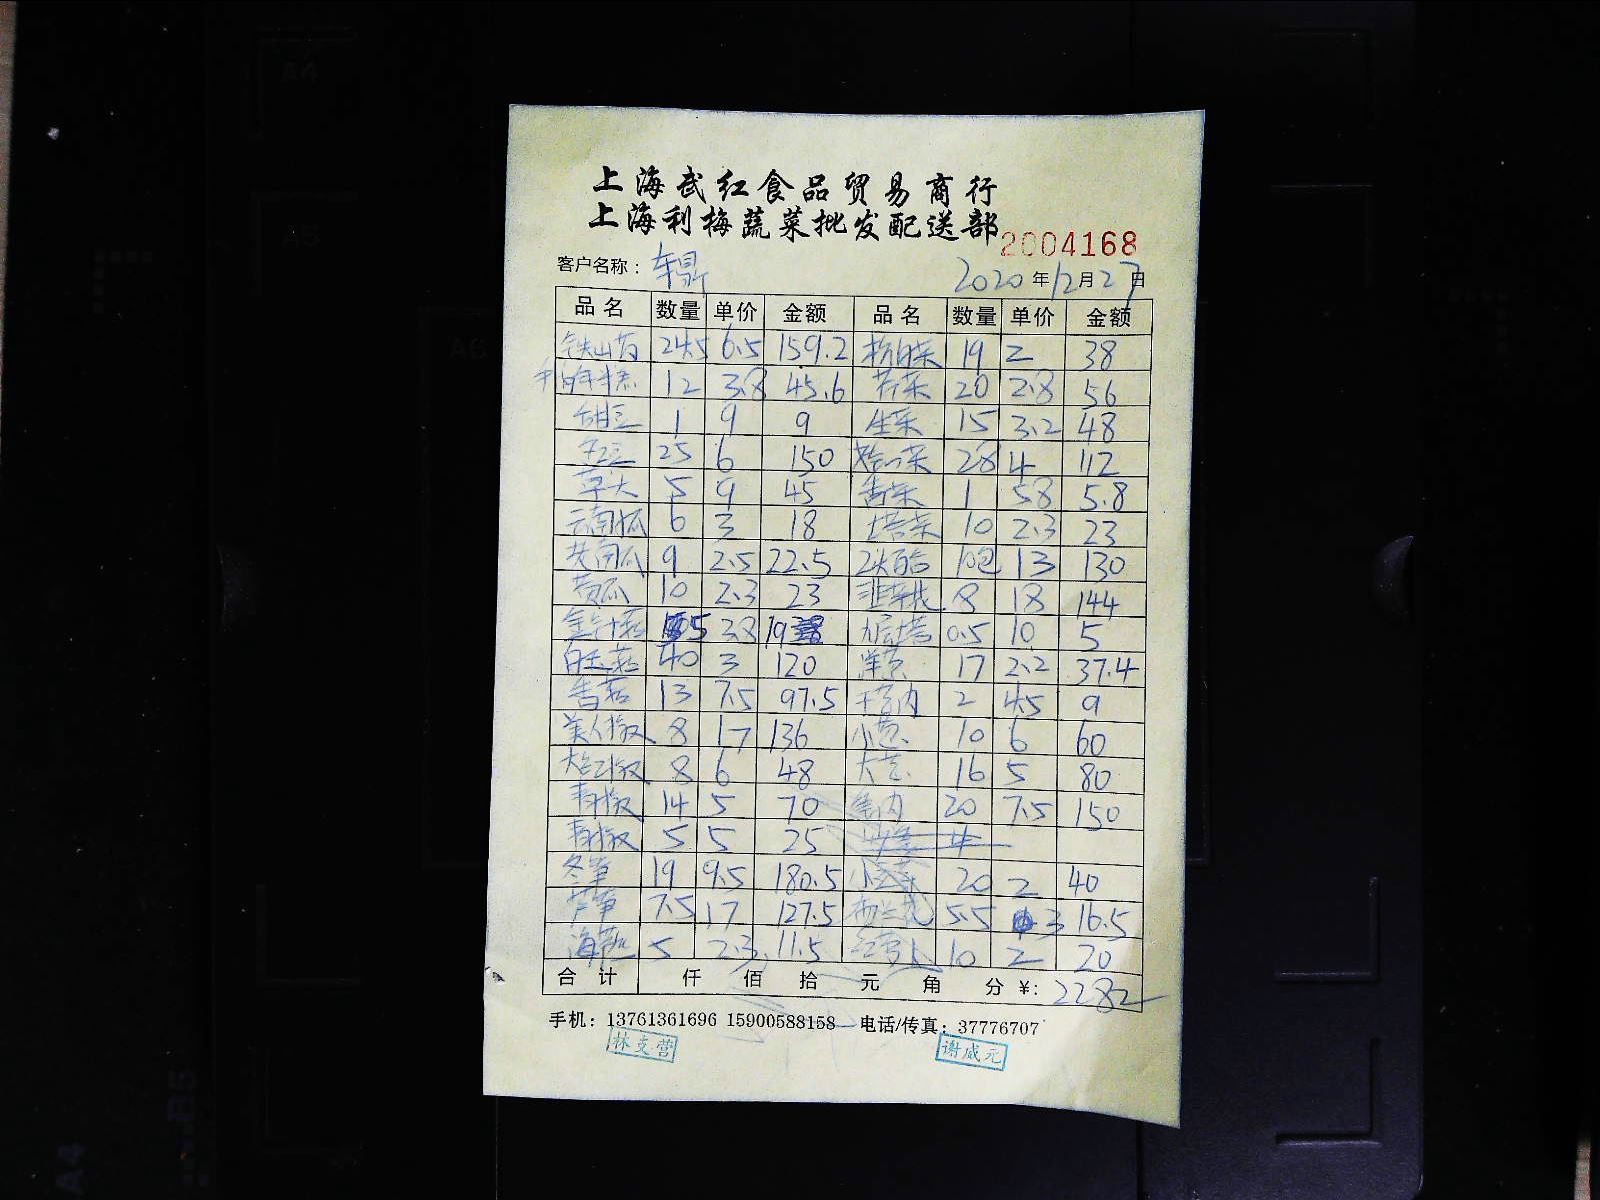 上海武红食品贸易商行
上海利梅蔬菜批发配送部
2004168
客户名称： 2020年12月27日
品名 数量 单价 金额 品名 数量 单价 金额
铁山药 24.5 6.5 159.2 杭白菜 19 2 38
12 3.8 45.6 芹菜 20 2.8 56
甜豆 1 9 9 生菜 15 3.2 48
毛豆 25 6 150 28 4 112
草头 5 9 45 香菜 1 5.8 5.8
云南瓜 6 3 18 塔菜 10 2.3 23
老南瓜 9 2.5 22.5 10包 13 130
黄瓜 10 2.3 23 韭 8 18 144
金针菇 5 3.8 19 九层塔 0.5 10 5
白玉菇 40 3 120 洋葱 17 2.2 37.4
香菇 13 7.5 97.5 2 4.5 9
美人椒 8 17 136 小葱 10 6 60
大红椒 8 6 48 大葱 16 5 80
青椒 14 5 70 20 7.5 150
青椒 5 5 25
冬笋 19 9.5 180.5 20 2 40
芦笋 7.5 17 127.5 西兰花 5.5 3 16.5
海带 5 2.3 11.5 10 2 20
合计 仟 佰 拾 元 角 分 ¥：2282
手机：13761361696 15900588158 电话/传真：37776707
林支营 谢成元